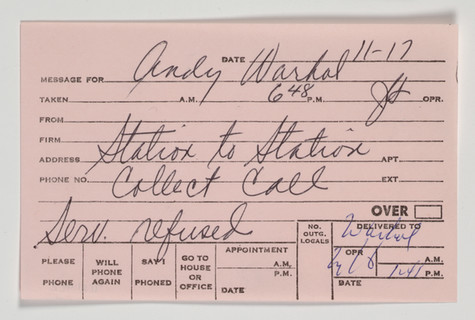 DATE 11-17
MESSAGE FOR Andy Warhol
TAKEN A.M. 6 48 P.M. OPR.
FROM
FIRM Station to Station
ADDRESS APT.
PHONE NO. Collect Call EXT.
OVER
Serv. refused
NO. OUTG. LOCALS
DELIVERED TO Warhol
PLEASE PHONE
WILL PHONE AGAIN
SAY I PHONED
GO TO HOUSE OR OFFICE
APPOINTMENT
A.M.
P.M.
DATE
OPR
A.M.
P.M.
DATE